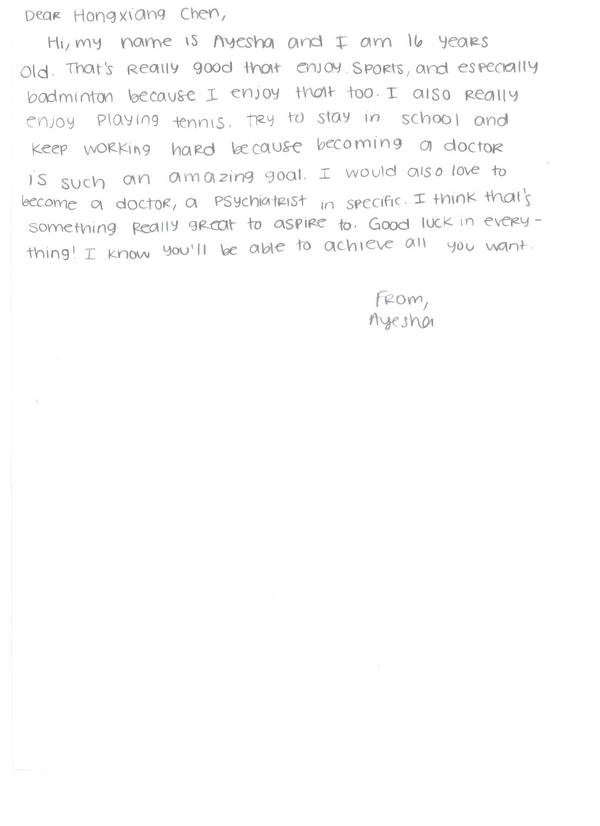 Dear Hongxiang Chen,
Hi, my name is Ayesha and I am 16 years
old. That's really good that enjoy sports, and especially
badminton because I enjoy that too. I also really
enjoy playing tennis. Try to stay in school and
keep working hard because becoming a doctor
is such an amazing goal. I would also love to
become a doctor, a psychiatrist in specific. I think that's
something really great to aspire to. Good luck in every-
thing! I know you'll be able to achieve all you want.
From,
Ayesha